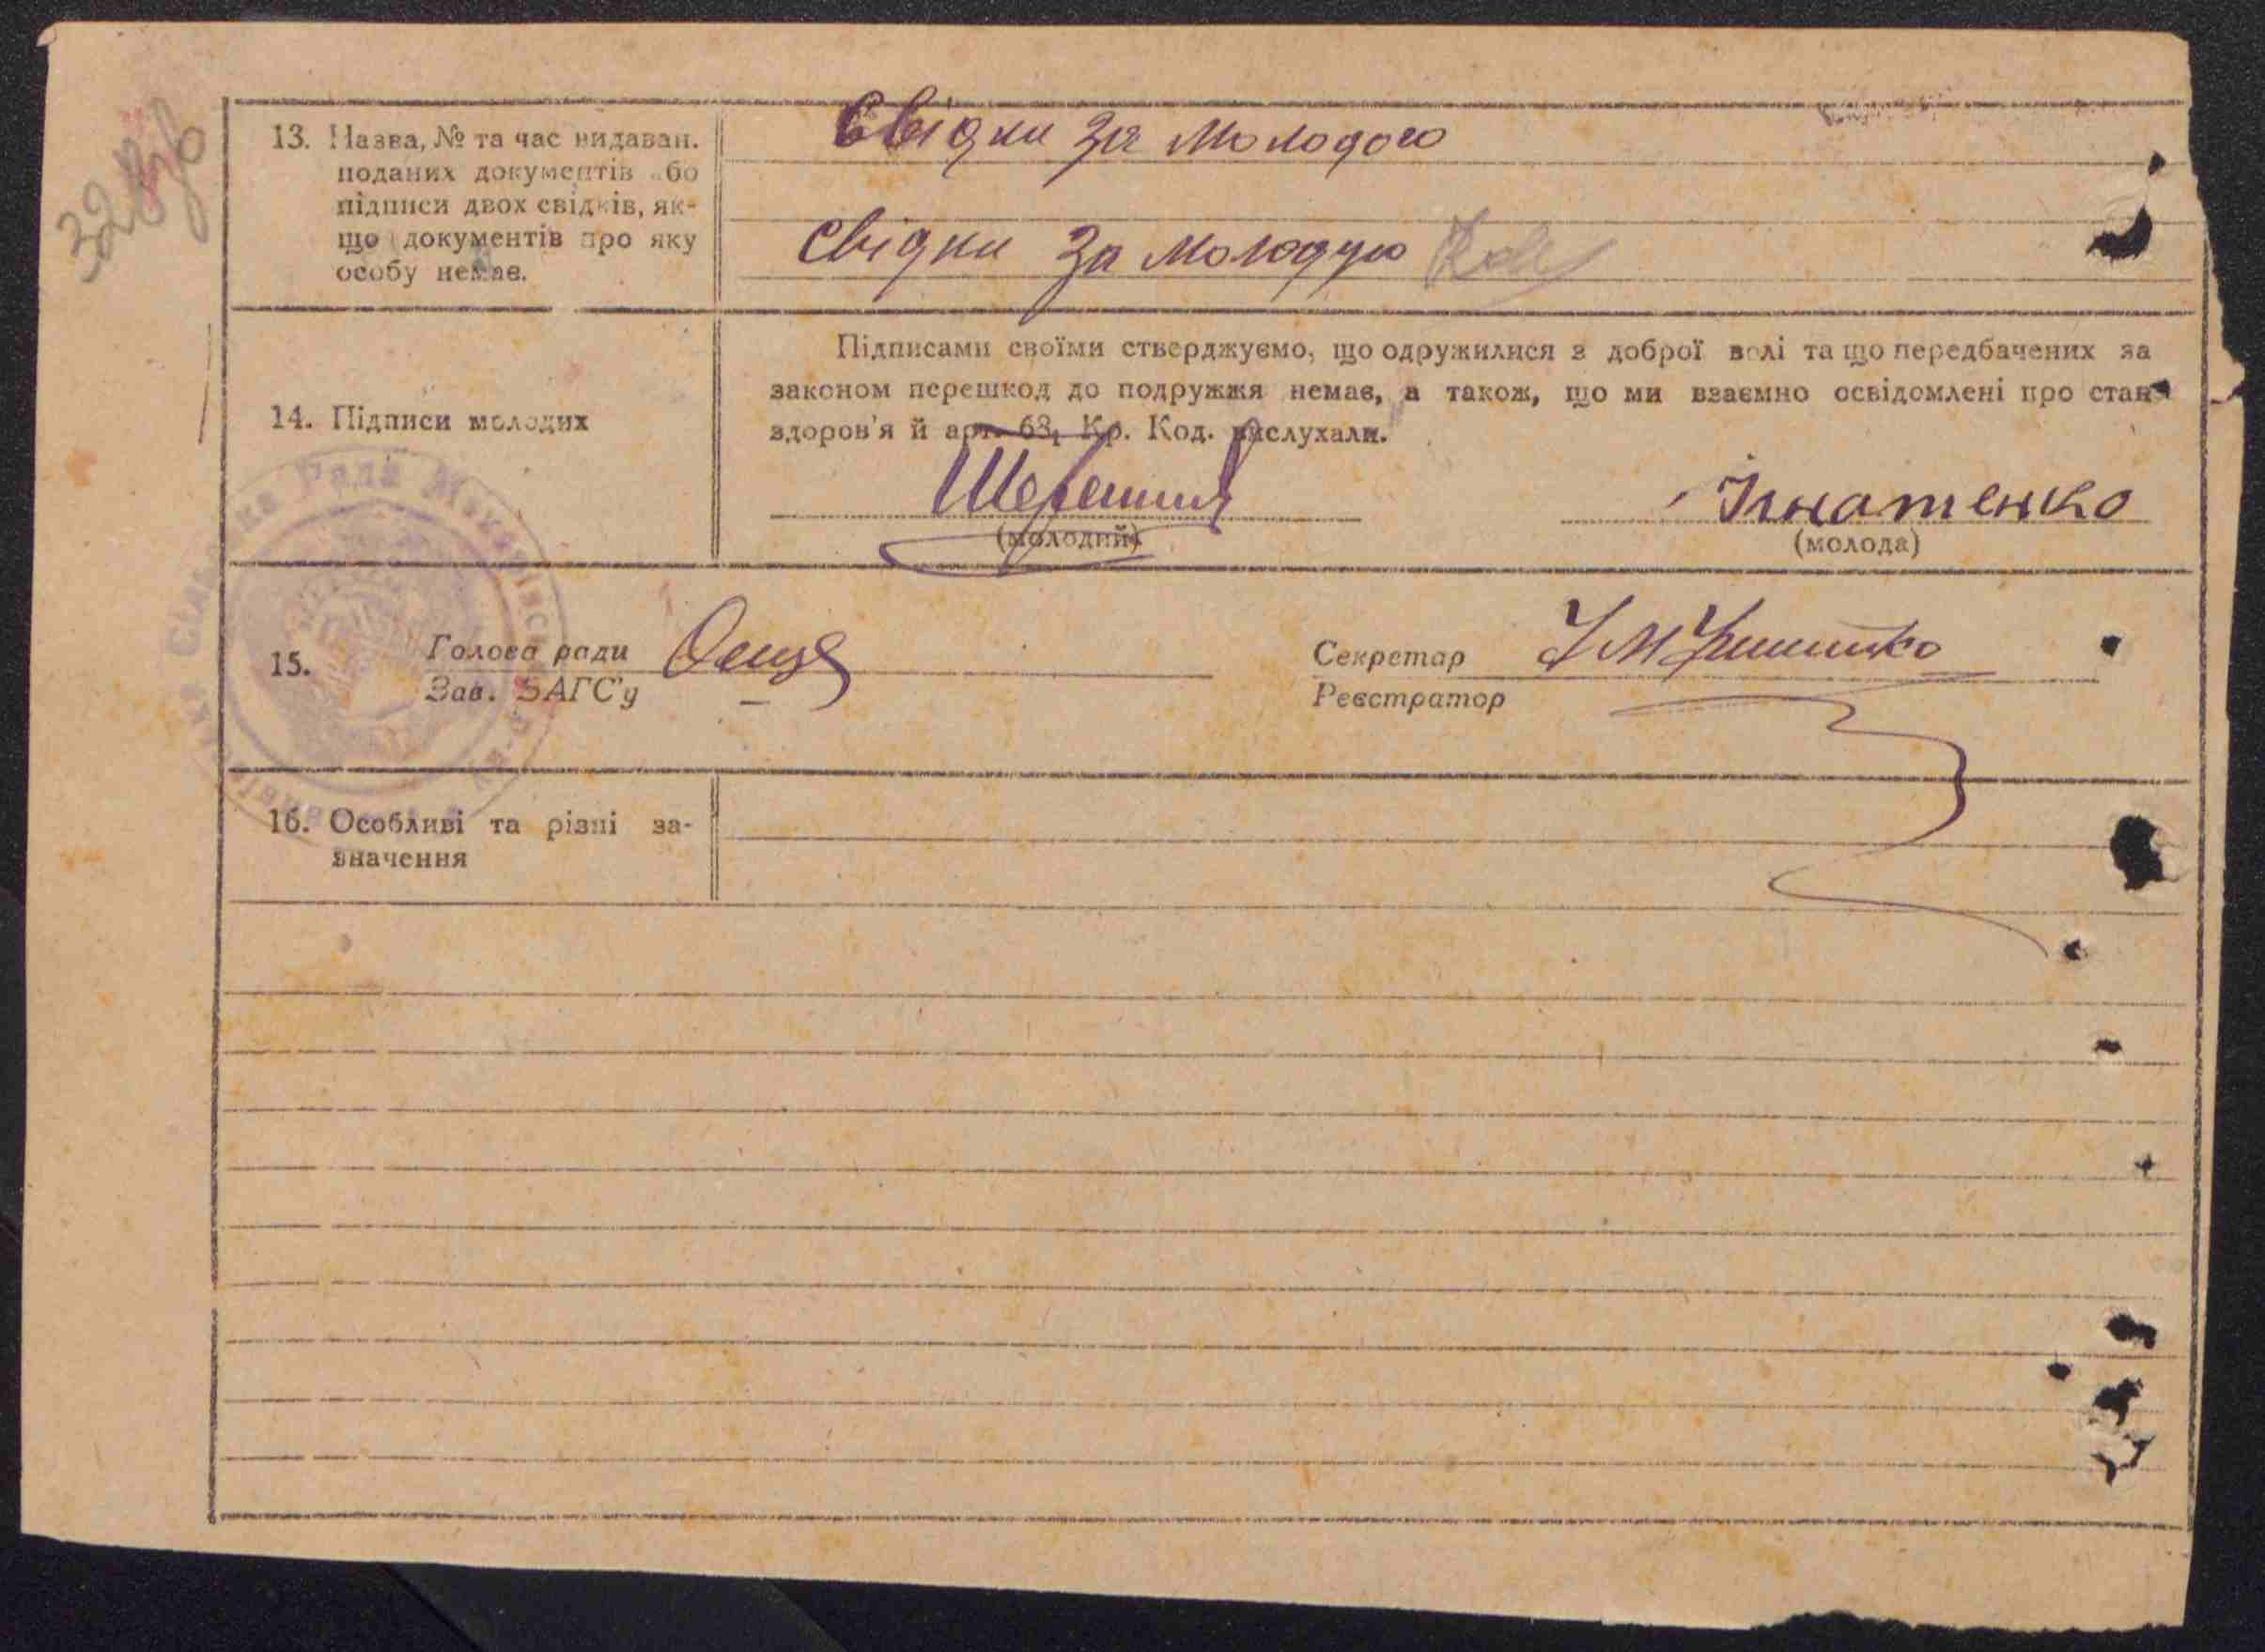 32 зв
13. Назва, № та час видаван.
поданих документів або
підписи двох свідків, як-
що документів про яку
особу немає.
Свідки за молодого
Свідки за молодую
Підписами своїми стверджуємо, що одружилися з доброї волі та що передбачених за
законом перешкод до подружжя немає, а також, що ми взаємно освідомлені про стан
здоров'я й арт. 63, Кр. Код. вислухали.
14. Підписи молодих
Ігнатенко
(молодий)
(молода)
15.
Голова ради
Зав. ЗАГС'у
Секретар
Реєстратор
16. Особливі та різні за-
значення